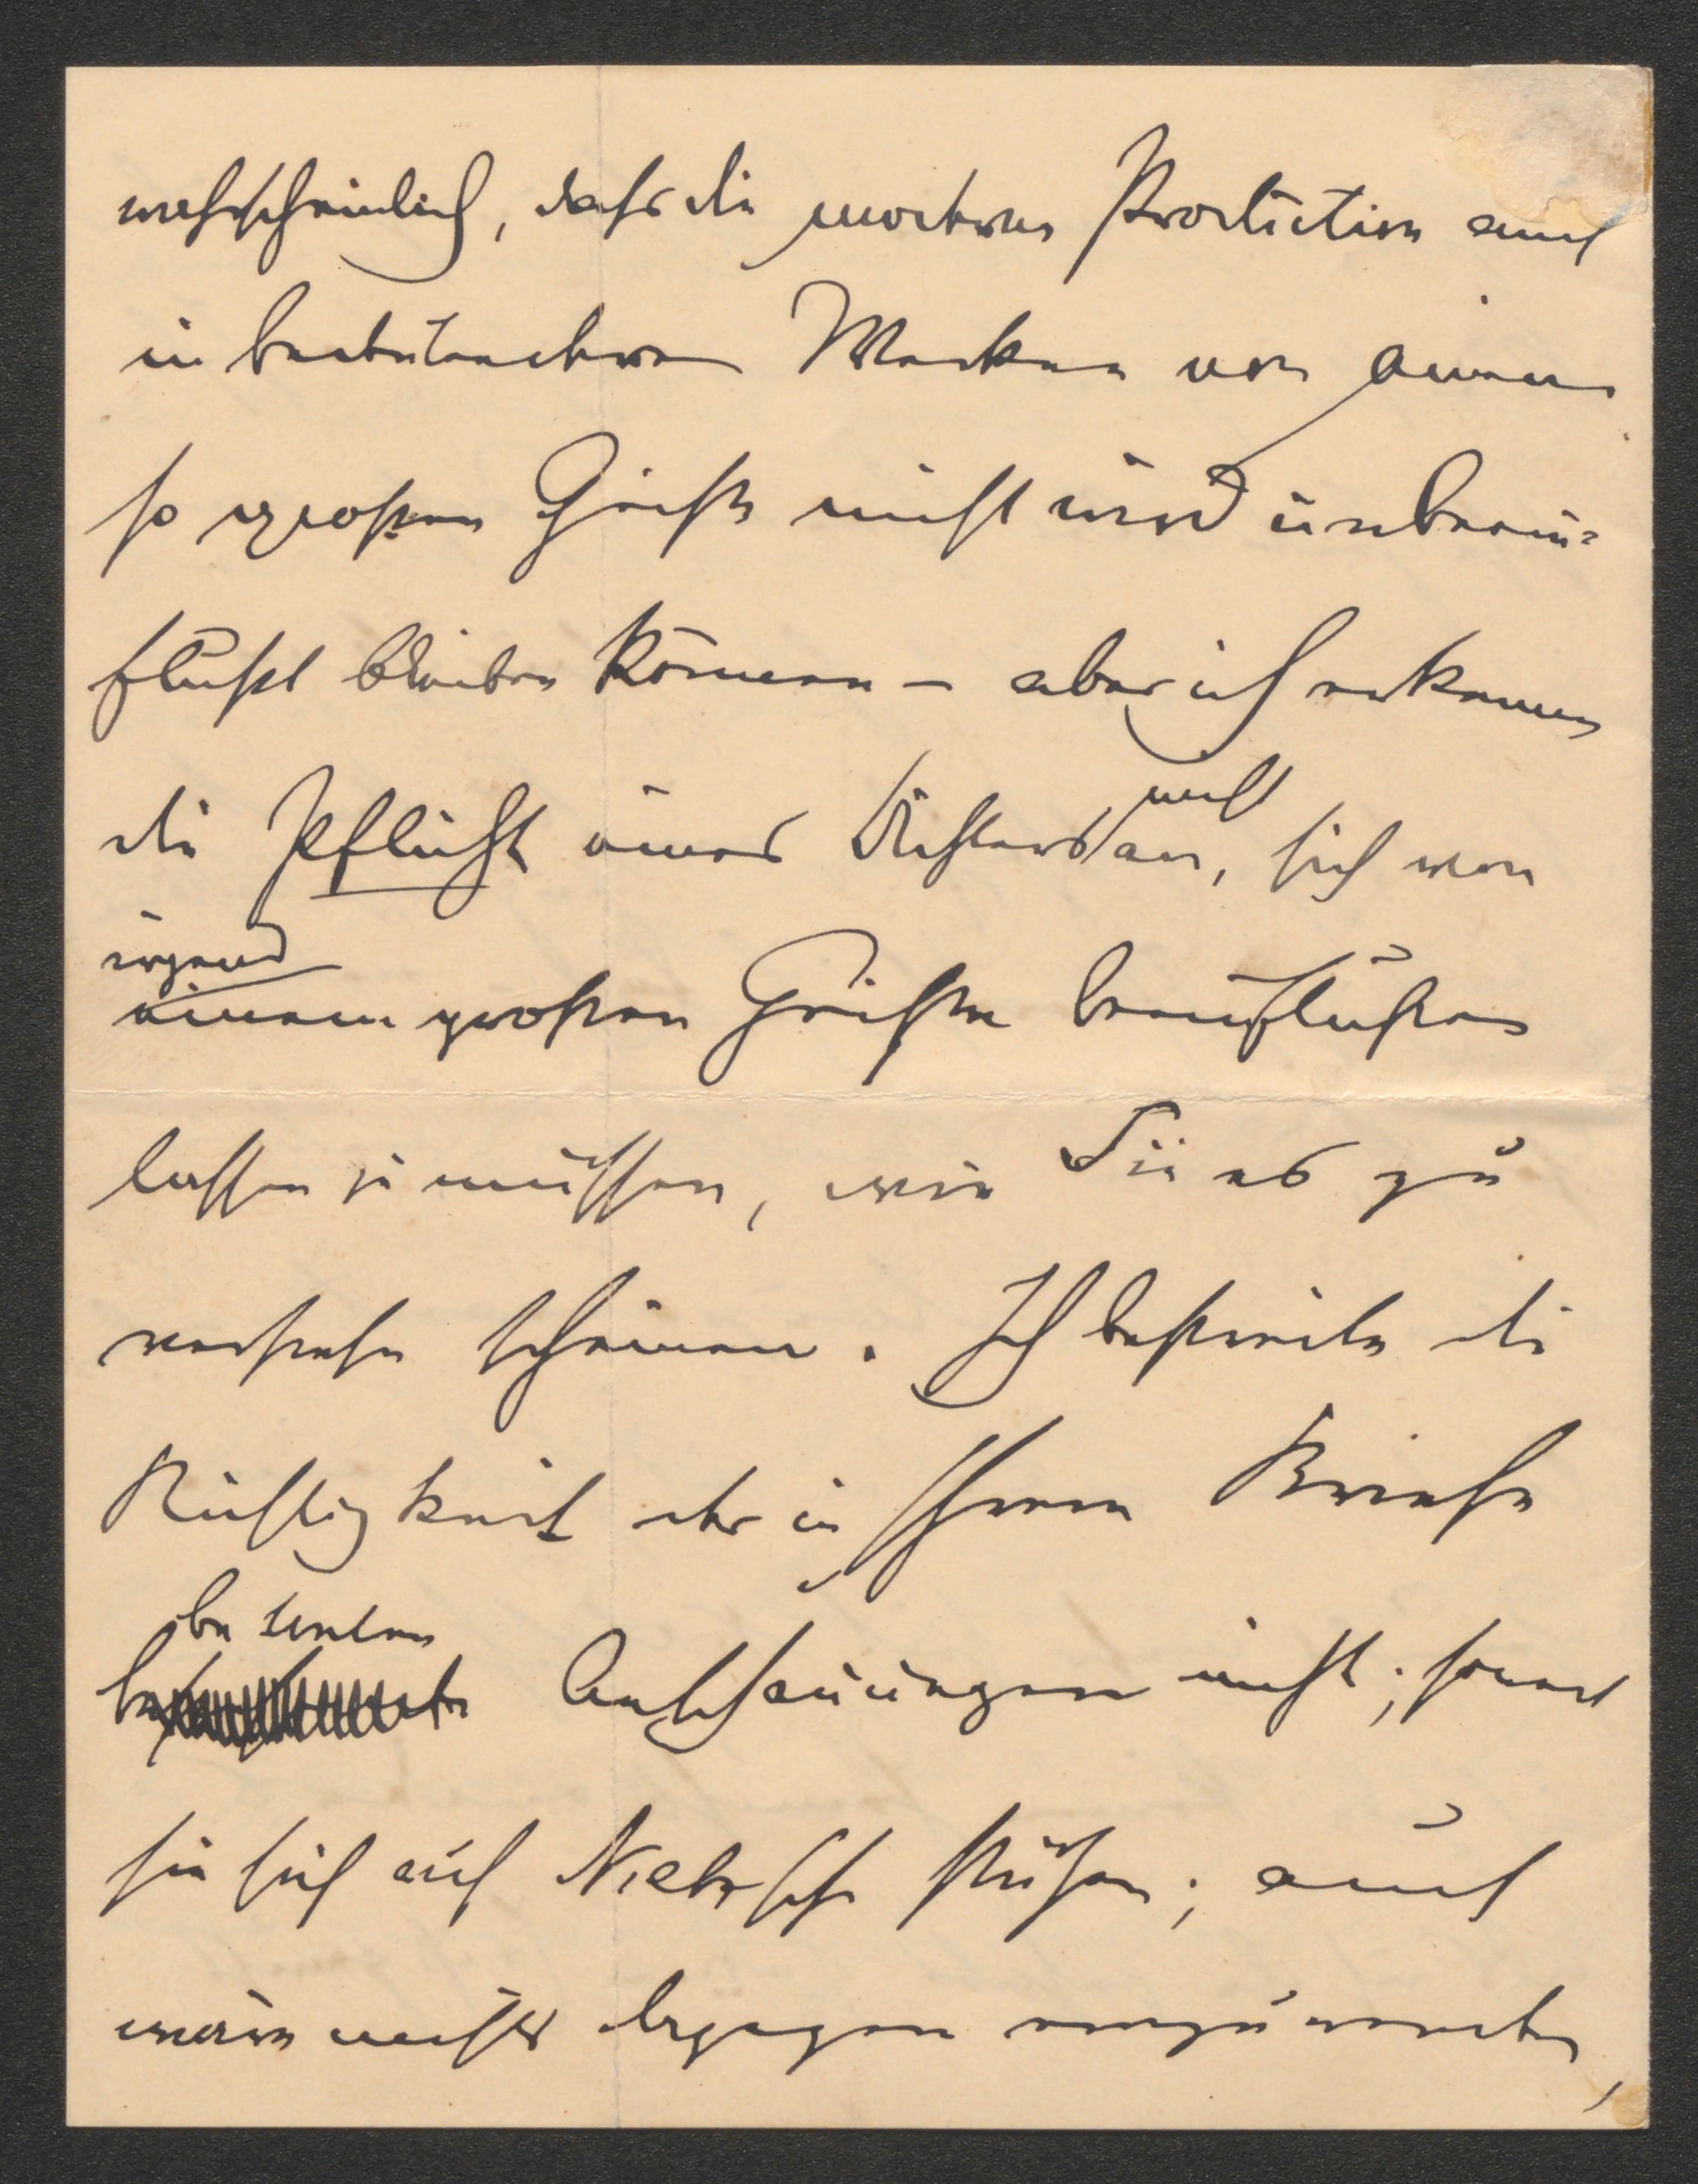 wahrscheinlich, dafs die moderne Production auch
in bedeutenderen Werken von einem
so großen Geiste nicht wird unbeein-
flußt bleiben können – aber ich erkenne
die Pflicht eines Dichters nicht an, sich von
irgend einem großen Geiste beeinflußen
lassen zu müssen, wie Sie es zu
verstehn scheinen. Ich bestreite die
Richtigkeit der in Ihrem Briefe
betonten Anschauungen nicht; soweit
sie sich auf Nietzsche stützen; auch
wäre nichts dagegen einzuwenden,